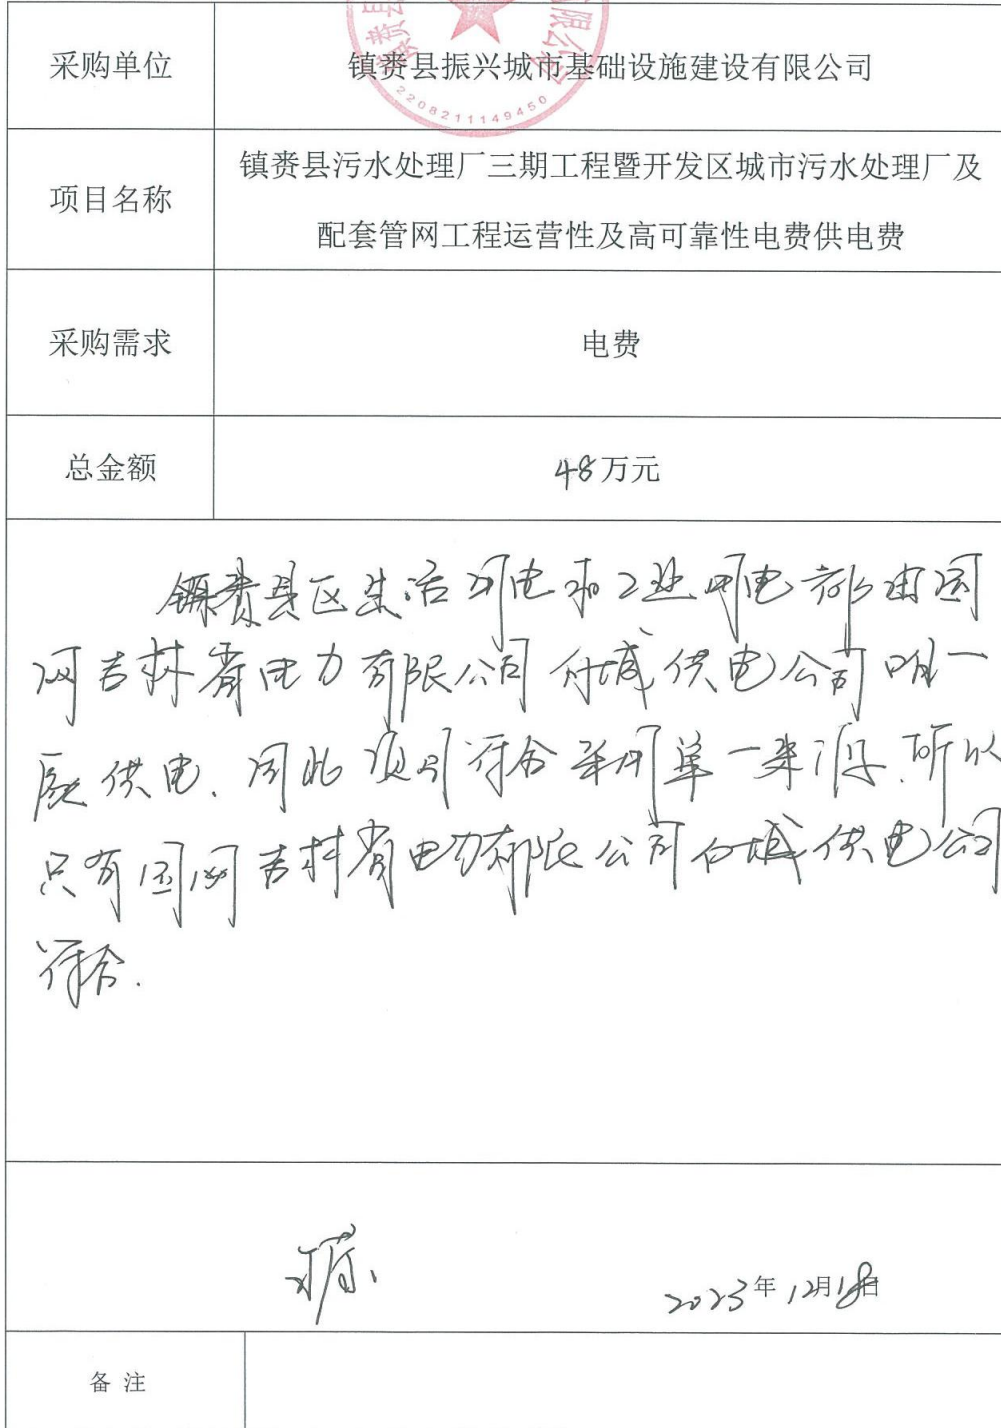 采购单位
镇赉县振兴城市基础设施建设有限公司
2208211149450
项目名称
镇赉县污水处理厂三期工程暨开发区城市污水处理厂及
配套管网工程运营性及高可靠性电费供电费
采购需求
电费
总金额
48万元
镇赉县区生活用电和工业用电都由国
网吉林省电力有限公司白城供电公司唯一
一家供电.因此项目符合采用单一来源.所以
只有国网吉林省电力有限公司白城供电公司
符合.
2023年12月18日
备注